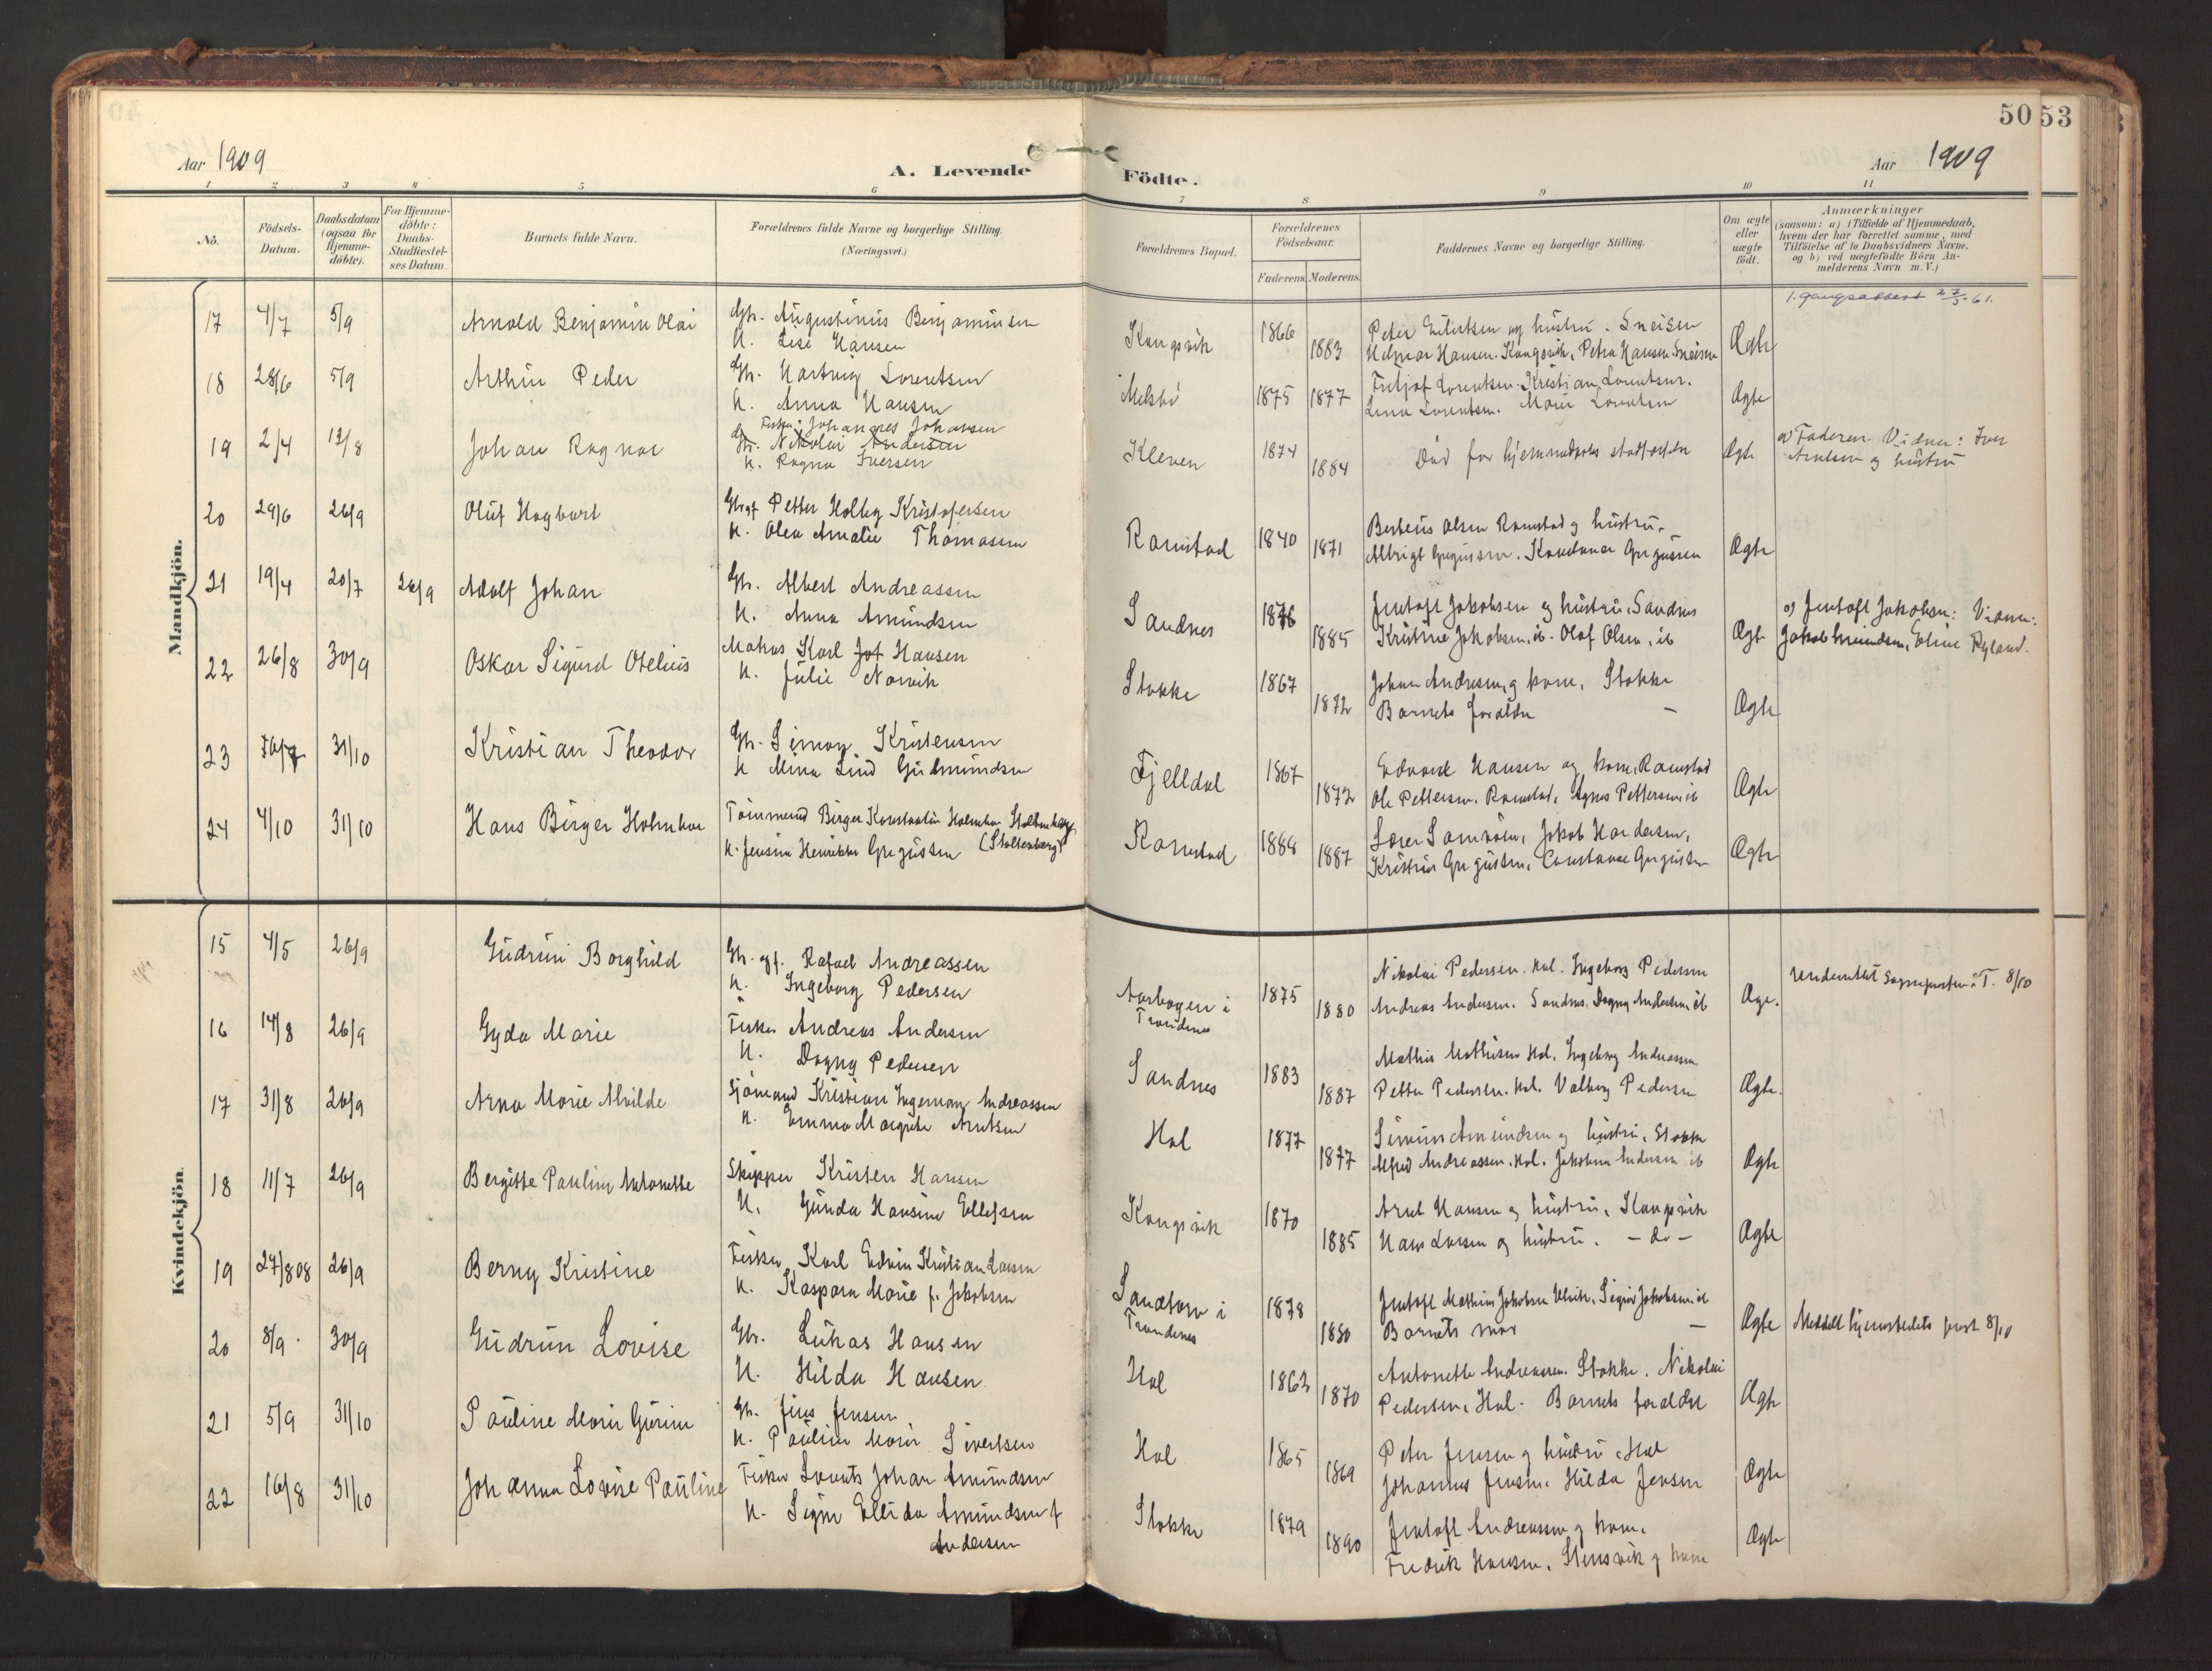 50 53
Aar 1909
A. Levende Födte.
Aar 1909
1 2 3 4 5 6 7 8 9 10 11
No.
Födsels-Datum.
Daabsdatum (ogsaa for Hjemme-döbte).
For Hjemme-döbte: Daabs-Stadfæstel-ses Datum.
Barnets fulde Navn.
Forældrenes fulde Navne og borgerlige Stilling. (Næringsvei.)
Forældrenes Bopæl.
Forældrenes Födselsaar.
Faderens. Moderens.
Faddernes Navne og borgerlige Stilling.
Om ægte eller uægte födt.
Anmærkninger (saasom: a) i Tilfælde af Hjemmedaab, hvem der har forrettet samme, med Tilföielse af to Daabsvidners Navne, og b) ved uægtefödte Börn An-melderens Navn m. V.)
Mandkjön.
17 4/7 5/9 Arnold Benjamin Olai Gbr. Augustinus Benjaminsen Kongsvik 1866 Peter Eilertsen og hustru. Sneisen Ægte
H. Lise Hansen 1883 Helmar Hansen. Kongsvik, Petra Hansen. Sneisen
18 28/6 5/9 Arthur Peder Gbr. Hartvig Lorentsen Melsbø 1875 1877 Fritjof Lorentsen. Kristian Lorentsen. Ægte
H. Anna Hansen Lina Lorentsen. Marie Lorentsen
Fisker Johannes Johansen
19 2/4 12/8 Johan Ragnar Gbr. Nikolai Andersen Kleven 1874 Død før hjemmedaabs stadfæstelse Ægte a) Faderen. Vidner: Iver
H. Ragna Iversen 1884 Arntsen og hustru
20 29/6 26/9 Oluf Hagbart Gbrgf Petter Holteg Kristofersen Ramstad 1840 Berteus Olsen Ramstad og hustru.
H. Olea Amalie Thomassen 1871 Albrigt Gregusen. Konstance Gregusen Ægte
21 19/4 20/7 26/9 Adolf Johan Gbr. Albert Andreassen Sandnes 1876 Jentoft Jakobsen og hustru, Sandnes a) Jentoft Jakobsen: Vidner:
H. Anna Amundsen 1885 Kristine Jakobsen, ib. Olaf Olsen, ib Ægt Jakob Amundsen, Eline Ryland.
22 26/8 30/9 Oskar Sigurd Otelius Matros Karl Jof Hansen Stokke 1867 Johan Andresen og kone, Stokke
H. Julie Norvik 1872 Barnets forældre — Ægte
23 30/7 31/10 Kristian Theodor Gbr. Simon Kristensen Fjelldal 1867 Edvard Hansen og kone, Ramstad
H Mina Lind Gudmundsen 1872 Ole Pettersen. Ramstad, Agnes Pettersen ib Ægte
24 4/10 31/10 Hans Birger Holmboe Tømmermd Birger Konstantin Holmboe Stoltenberg Ramstad 1884 Lorer Samuelsen, Jakob Hardersen,
H. Jensine Henrikke Gregusen (Stoltenberg) 1887 Kristine Gregusen, Constance Gregusen Ægte
Kvindekjön.
15 4/5 26/9 Gudrun Borghild Gbr. og f. Rafael Andreassen Aarbogen i 1875 Nikolai Pedersen. Hol. Ingeborg Pedersen Underrettet Sogneprsten i T. 8/10
H. Ingeborg Pedersen Trondenes 1880 Andreas Andersen. Sandnes, Dagny Andersen ib Æge.
16 14/8 26/9 Gyda Marie Fisker Andreas Andersen Sandnes 1883 Mathis Mathisen Hol, Ingeborg Andreassen
H. Dagny Pedersen 1887 Petter Pedersen. Hol. Valborg Pedersen Ægte.
17 31/8 26/9 Arna Marie Alvilde Sjømand Kristian Ingemann Andreassen Hol 1877 Simon Amundsen og hustru, Stokke
H. Emma Margrete Arntsen 1877 Alfred Andreassen. Hol. Jakobine Andersen ib Ægte
18 11/7 26/9 Bergitte Pauline Antonette Skipper Kristen Hansen Kongsvik 1870 Arnt Hansen og hustru, Kongsvik
H. Gunda Hansine Ellefsen 1885 Hans Larsen og hustru. — do — Ægte
19 27/8 08 26/9 Berny Kristine Fisker Karl Edvin Kristian Larsen Sandtorv i 1878 Jentoft Mathias Jakobsen Ulvik, Signe Jakobsen ib
H. Kaspara Marie f. Jakobsen Trondenes 1880 Barnets mor — Ægte Meddelt hjemstedets prest 8/10
20 8/9 30/9 Gudrun Lovise Gbr. Lukas Hansen Hol 1862 Antonette Andreassen. Stokke. Nikolai
H. Hilda Hansen 1870 Pedersen, Hol. Barnets forældre Ægte
21 5/9 31/10 Pauline Marie Gurine Gbr. Jens Jensen Hol 1865 Peter Jensen og hustru. Hol
H. Pauline Marie Sivertsen 1869 Johannes Jensen. Hilda Jensen Ægte
22 16/8 31/10 Johanna Lovise Pauline Fisker Lorents Johan Amundsen Stokke 1879 Jentoft Andreassen og kone.
H. Signe Ellida Amundsen f 1890 Fredrik Hansen. Stensvik og kone Ægte
Andersen